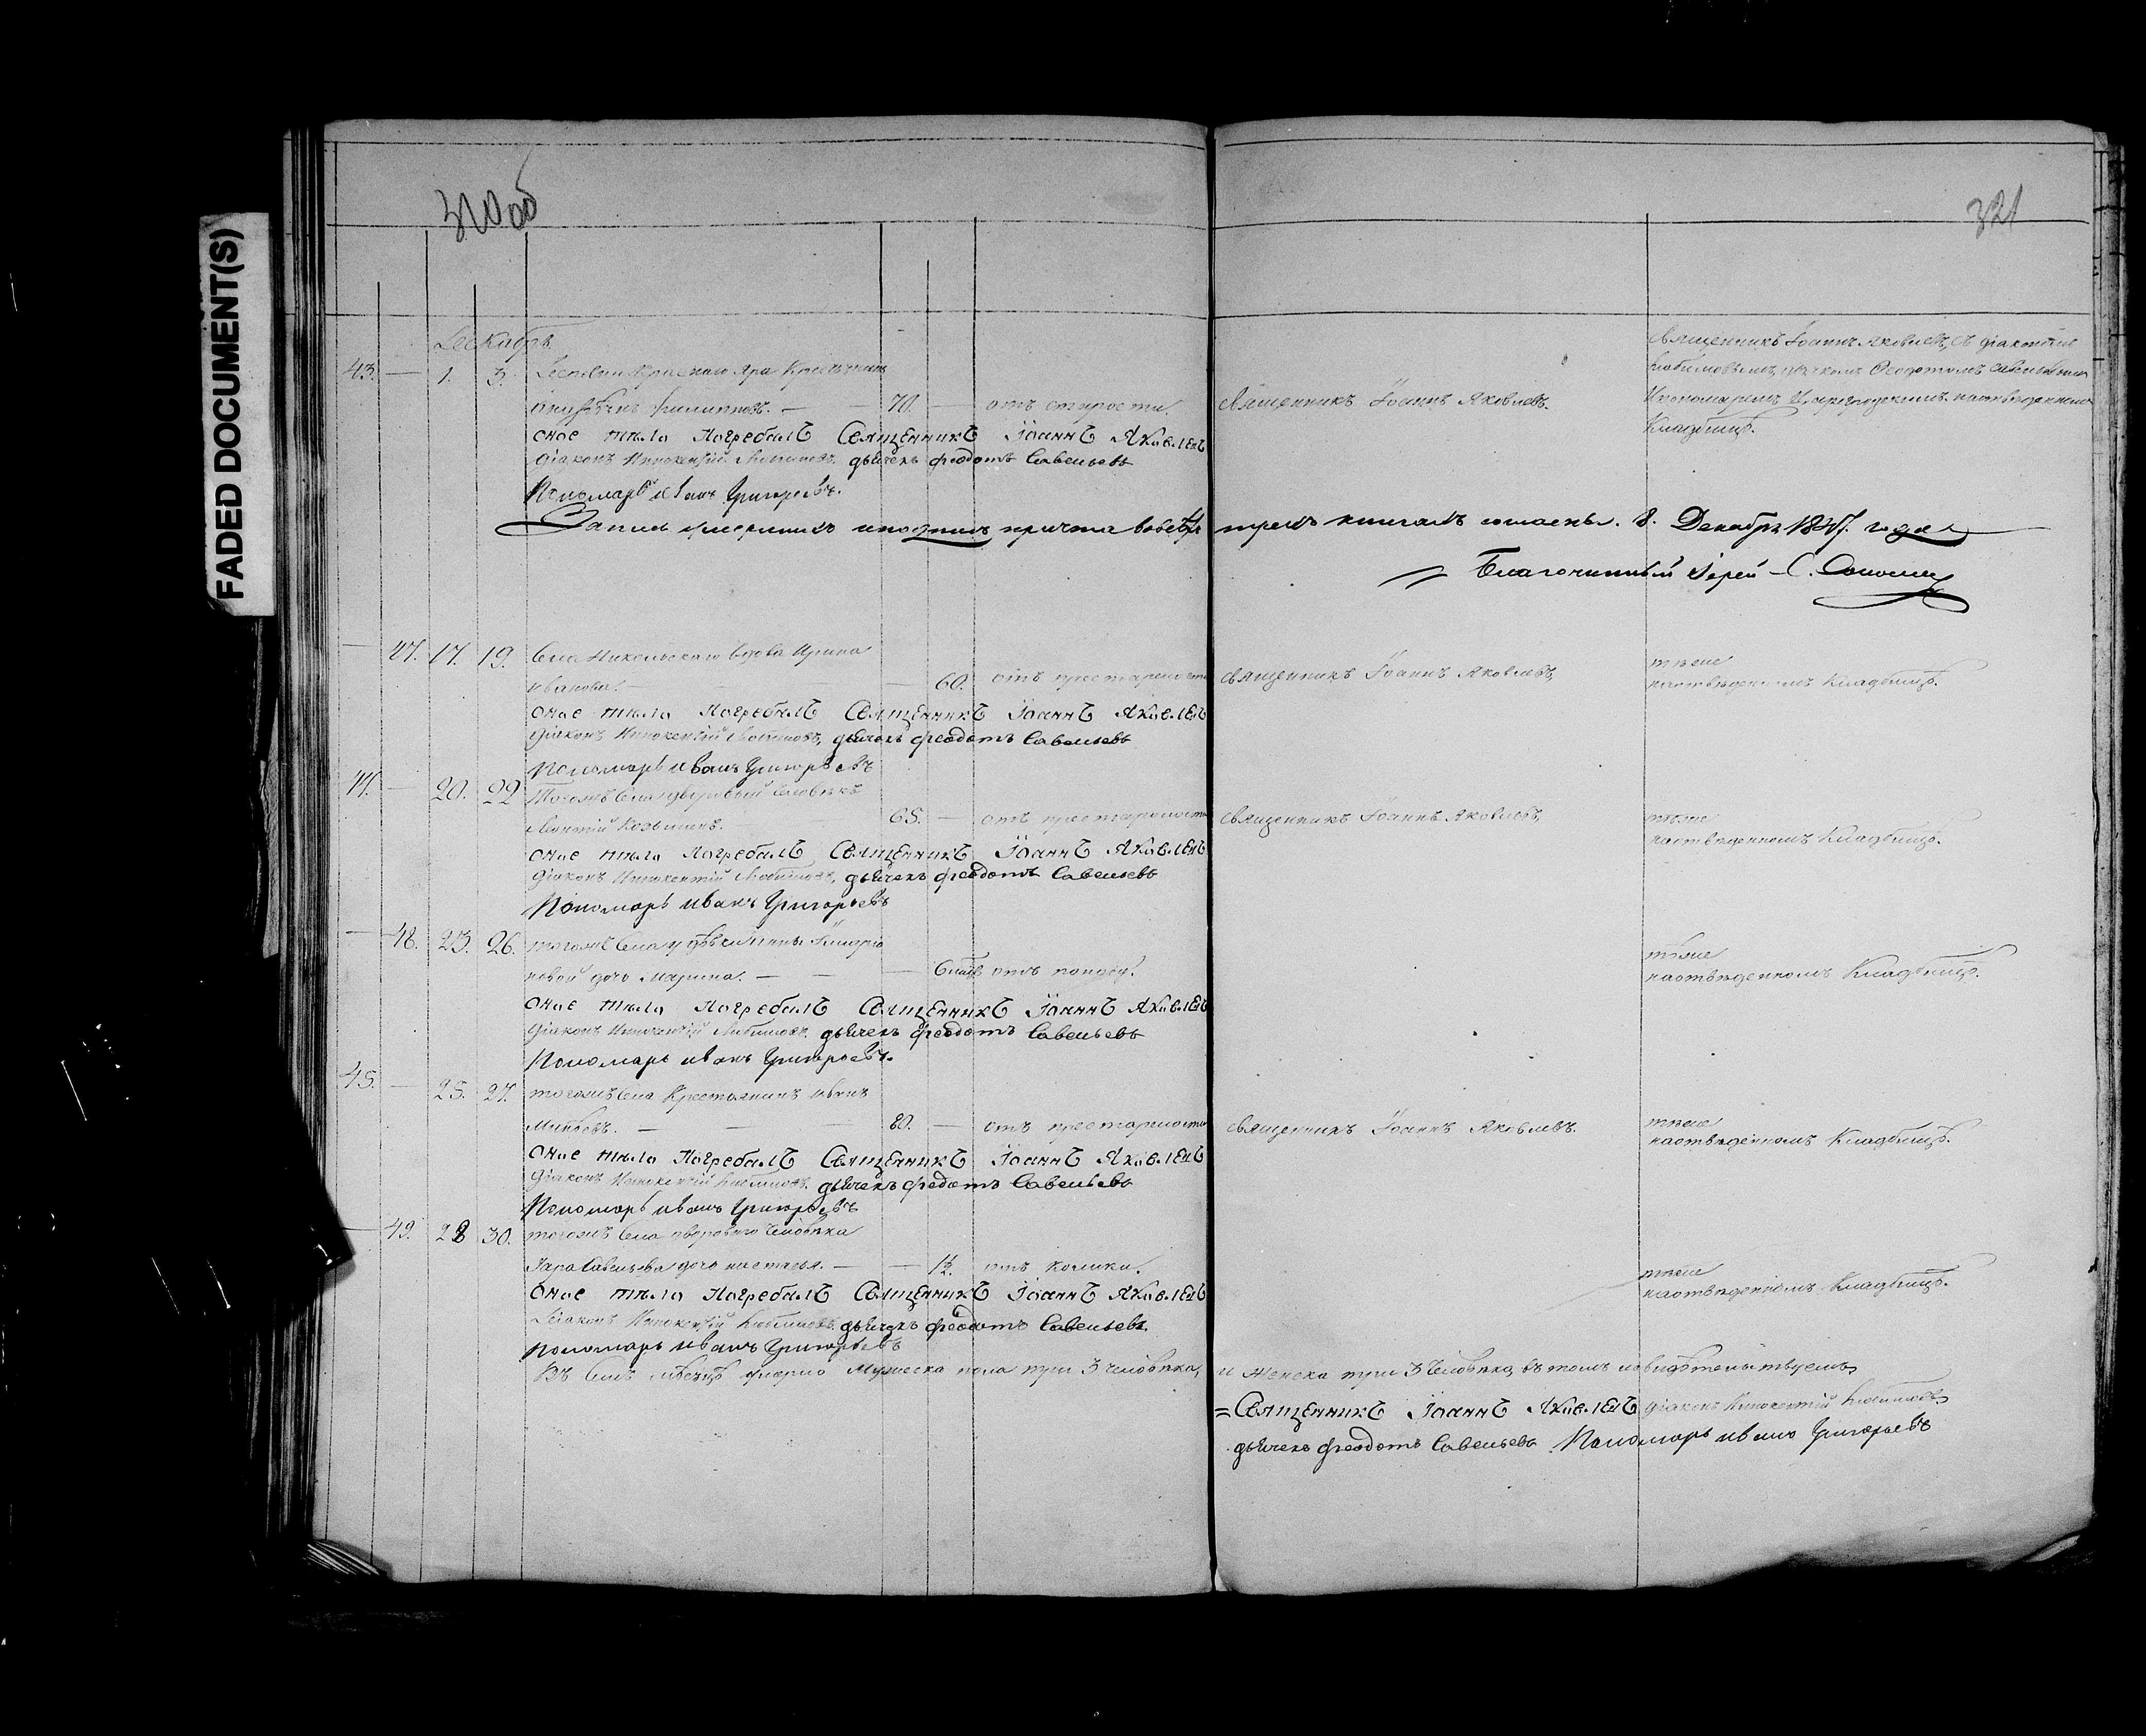 FADED DOCUMENT(S)
320 об
321
Декабрь
43. — 1. 3. Краснаго Яра
Филипповъ. — 70. — отъ старости. Священникъ Іоаннъ Яковлевъ.
Священникъ Іоаннъ Яковлевъ, съ діакономъ
Любимовымъ, дьячкомъ Ѳеодотомъ Савельевымъ
Пономаремъ на отведенномъ
Кладбищѣ.
Оное тѣло Погребалъ Священникъ Іоаннъ Яковлевъ
діаконъ Иннокентій Любимовъ. дьячекъ Феодотъ Савельевъ
Пономарь Иванъ Григорьевъ.
Запись умершихъ и подпись причта въ трехъ книгахъ согласны. 8. Декабря 1847. года
Благочинный Іерей С.
— 47. 17. 19. Села Никольскаго вдова Ирина
Иванова. — — 60. отъ престарелости Священникъ Іоаннъ Яковлевъ,
тѣже
на отведенномъ Кладбищѣ.
Оное тѣло Погребалъ Священникъ Іоаннъ Яковлевъ
діаконъ Иннокентій Любимовъ, дьячекъ Феодотъ Савельевъ
Пономарь Иванъ Григорьевъ
44. — 20. 22 Тогожъ Села дворовый человѣкъ
Леонтій Козьминъ. — 65. — отъ престарелости Священникъ Іоаннъ Яковлевъ,
тѣже
на отведенномъ Кладбищѣ.
Оное тѣло Погребалъ Священникъ Іоаннъ Яковлевъ
діаконъ Иннокентій Любимовъ, дьячекъ Феодотъ Савельевъ
Пономарь Иванъ Григорьевъ
— 48. 25. 26. тогожъ Села у
новой дочь Марина. — — — отъ поносу.
тѣже
на отведенномъ Кладбищѣ.
Оное тѣло Погребалъ Священникъ Іоаннъ Яковлевъ
діаконъ Иннокентій Любимовъ. дьячекъ Феодотъ Савельевъ
Пономарь Иванъ Григорьевъ.
45. — 25. 27. тогожъ Села Крестьянинъ Иванъ
— — 80. — отъ престарелости Священникъ Іоаннъ Яковлевъ.
тѣже
на отведенномъ Кладбищѣ.
Оное тѣло Погребалъ Священникъ Іоаннъ Яковлевъ
діаконъ Иннокентій Любимовъ. дьячекъ Федотъ Савельевъ
Пономарь Иванъ Григорьевъ
— 49. 28 30. тогожъ Села двороваго человѣка
Савельева дочь Настасья. — — 1/2. отъ колики.
тѣже
на отведенномъ Кладбищѣ.
Оное тѣло Погребалъ Священникъ Іоаннъ Яковлевъ
Діаконъ Иннокентій Любимовъ. дьячекъ Феодотъ Савельевъ.
Пономарь Иванъ Григорьевъ
Въ семъ мѣсяцѣ умерло Мужеска пола три 3 человѣка, и Женска три 3 человѣка, въ томъ и свидѣтельствуемъ
=Священникъ Іоаннъ Яковлевъ діаконъ Иннокентій Любимовъ
дьячекъ Феодотъ Савельевъ Пономарь Иванъ Григорьевъ